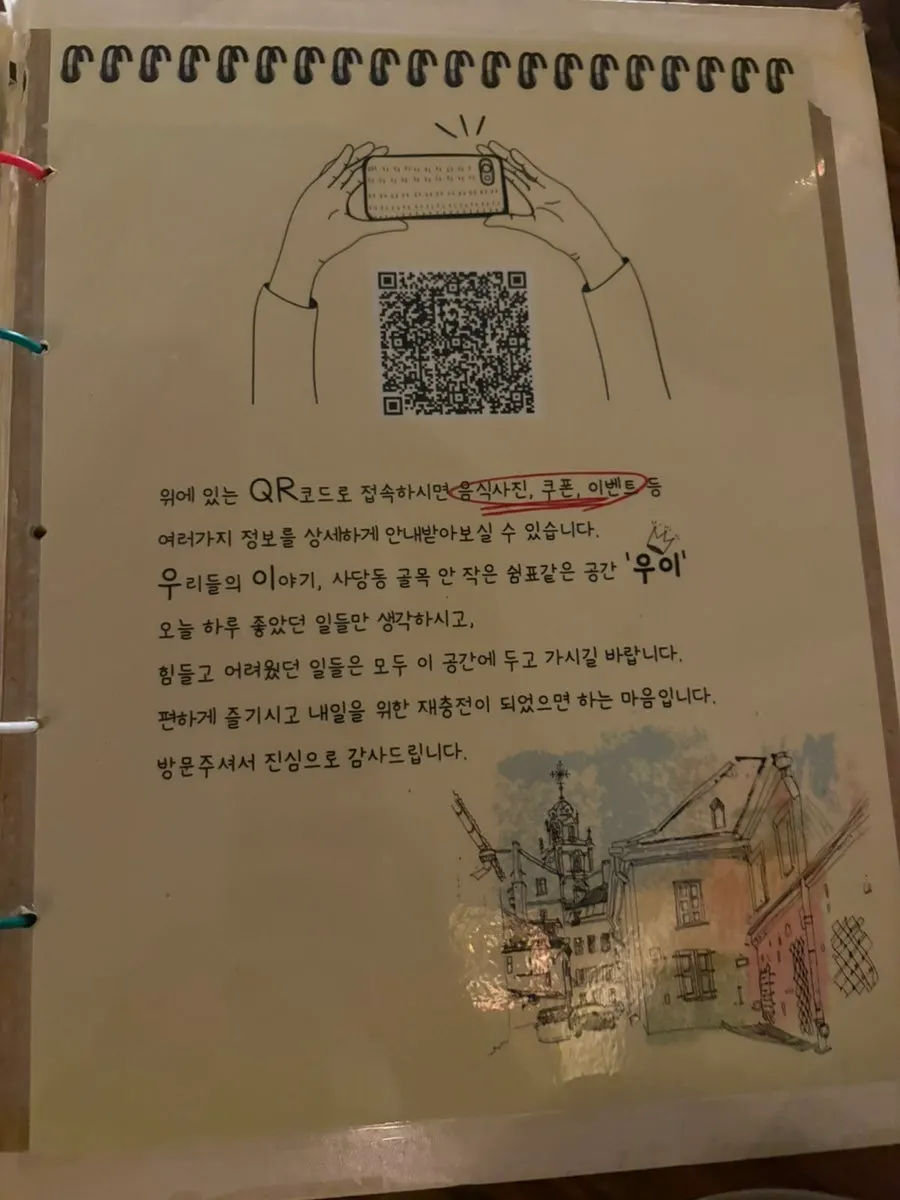 위에 있는 QR코드로 접속하시면 음식사진, 쿠폰, 이벤트 등
여러가지 정보를 상세하게 안내받아보실 수 있습니다.
우리들의 이야기, 사당동 골목 안 작은 쉼표같은 공간 '우이'
오늘 하루 좋았던 일들만 생각하시고,
힘들고 어려웠던 일들은 모두 이 공간에 두고 가시길 바랍니다.
편하게 즐기시고 내일을 위한 재충전이 되었으면 하는 마음입니다.
방문주셔서 진심으로 감사드립니다.